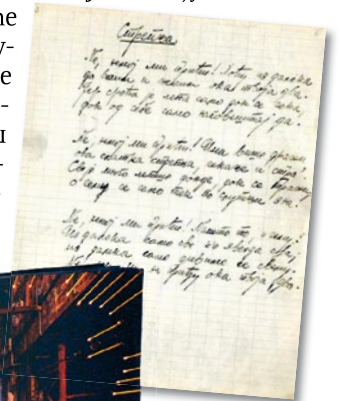 Стрепња
Не, немој ми прићи! Хоћу из далека
да волим и желим ока твоја два.
Јер срећа је лепа само док се чека,
док од себе само наговештај да.
Не, немој ми прићи! Има више дражи
ова слатка стрепња, чекање и страх.
Све је много лепше донде док се тражи,
о чему се само тек по слутњи зна.
Не, немој ми прићи! Нашто то, и чему?
Из далека само све ко звезда сја;
из далека само дивимо се свему.
Не, приђу ока твоја два.